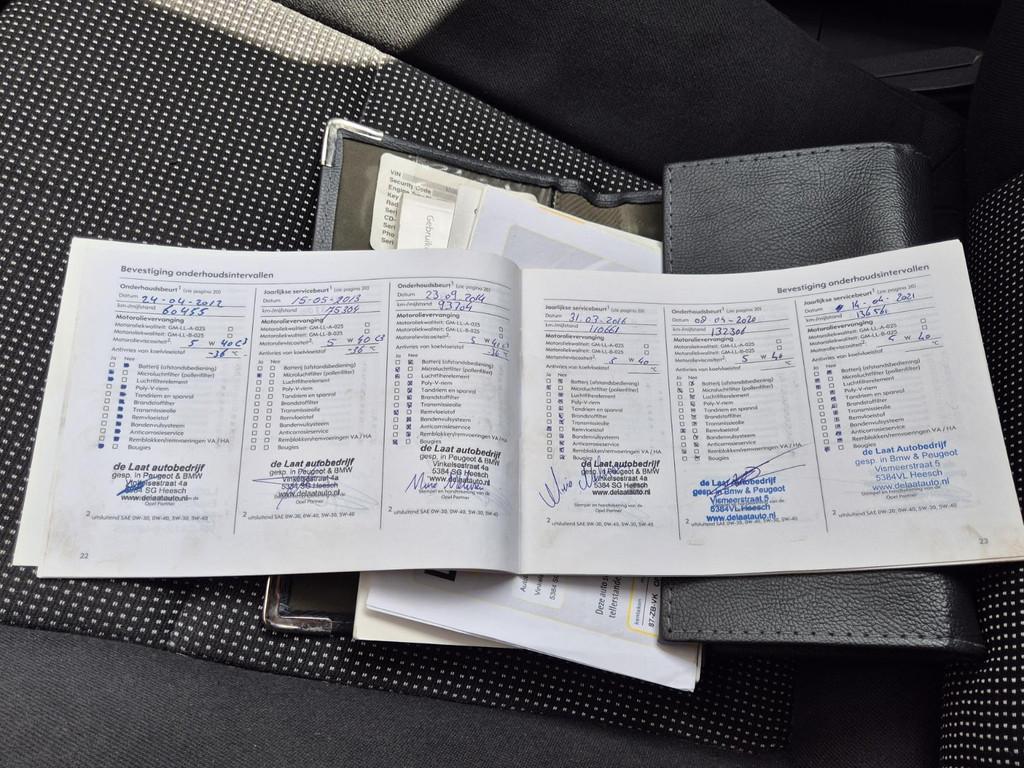 VIN
Security Code
Engine
Key
Rad
Seri
CD-
Seri
Pho
Seri
Gebruik
Bevestiging onderhoudsintervallen
Onderhoudsbeurt¹ (zie pagina 20)
Datum 24-04-2012
km-/mijlstand 60455
Motorolievervanging
Motoroliekwaliteit: GM-LL-A-025
Motoroliekwaliteit: GM-LL-B-025
Motorolieviscositeit²: 5 W 40 C3
Antivries van koelvloeistof -36 °C
Ja Nee
Batterij (afstandsbediening)
Microluchtfilter (pollenfilter)
Luchtfilterelement
Poly-V-riem
Tandriem en spanrol
Brandstoffilter
Transmissieolie
Remvloeistof
Bandenvulsysteem
Anticorrosieservice
Remblokken/remvoeringen VA / HA
Bougies
de Laat autobedrijf
gesp. in Peugeot & BMW
Vinkelsestraat 4a
5384 SG Heesch
www.delaatauto.nl
Opel Partner
2 uitsluitend SAE 0W-30, 0W-40, 5W-30, 5W-40
22
Jaarlijkse servicebeurt¹ (zie pagina 20)
Datum 15-05-2013
km-/mijlstand 75304
Motorolievervanging
Motoroliekwaliteit: GM-LL-A-025
Motoroliekwaliteit: GM-LL-B-025
Motorolieviscositeit²: 5 W 40 C3
Antivries van koelvloeistof -36 °C
Ja Nee
Batterij (afstandsbediening)
Microluchtfilter (pollenfilter)
Luchtfilterelement
Poly-V-riem
Tandriem en spanrol
Brandstoffilter
Transmissieolie
Remvloeistof
Bandenvulsysteem
Anticorrosieservice
Remblokken/remvoeringen VA / HA
Bougies
de Laat autobedrijf
gesp. in Peugeot & BMW
Vinkelsestraat 4a
5384 SG Heesch
www.delaatauto.nl
Opel Partner
2 uitsluitend SAE 0W-30, 0W-40, 5W-30, 5W-40
Onderhoudsbeurt¹ (zie pagina 20)
Datum 23.09.2014
km-/mijlstand 93704
Motorolievervanging
Motoroliekwaliteit: GM-LL-A-025
Motoroliekwaliteit: GM-LL-B-025
Motorolieviscositeit²: 5 W
Antivries van koelvloeistof -36 °C
Ja Nee
Batterij (afstandsbediening)
Microluchtfilter (pollenfilter)
Luchtfilterelement
Poly-V-riem
Tandriem en spanrol
Brandstoffilter
Transmissieolie
Remvloeistof
Bandenvulsysteem
Anticorrosieservice
Remblokken/remvoeringen VA / HA
Bougies
de Laat autobedrijf
gesp. in Peugeot & BMW
Vinkelsestraat 4a
5384 SG Heesch
www.delaatauto.nl
Opel Partner
2 uitsluitend SAE 0W-30, 0W-40, 5W-30, 5W-40
Bevestiging onderhoudsintervallen
Jaarlijkse servicebeurt¹ (zie pagina 20)
Datum 31.03.2016
km-/mijlstand 110661
Motorolievervanging
Motoroliekwaliteit: GM-LL-A-025
Motoroliekwaliteit: GM-LL-B-025
Motorolieviscositeit²: 5 W 40
Antivries van koelvloeistof °C
Ja Nee
Batterij (afstandsbediening)
Microluchtfilter (pollenfilter)
Luchtfilterelement
Poly-V-riem
Tandriem en spanrol
Brandstoffilter
Transmissieolie
Remvloeistof
Bandenvulsysteem
Anticorrosieservice
Remblokken/remvoeringen VA / HA
Bougies
de Laat autobedrijf
gesp. in Peugeot & BMW
Vinkelsestraat 4a
5384 SG Heesch
www.delaatauto.nl
Opel Partner
2 uitsluitend SAE 0W-30, 0W-40, 5W-30, 5W-40
Onderhoudsbeurt¹ (zie pagina 20)
Datum 08 04-2020
km-/mijlstand 132306
Motorolievervanging
Motoroliekwaliteit: GM-LL-A-025
Motoroliekwaliteit: GM-LL-B-025
Motorolieviscositeit²: 5 W 40
Antivries van koelvloeistof °C
Ja Nee
Batterij (afstandsbediening)
Microluchtfilter (pollenfilter)
Luchtfilterelement
Poly-V-riem
Tandriem en spanrol
Brandstoffilter
Transmissieolie
Remvloeistof
Bandenvulsysteem
Anticorrosieservice
Remblokken/remvoeringen VA / HA
Bougies
de Laat autobedrijf
gesp. in Bmw & Peugeot
Vismeerstraat 5
5384VL Heesch
www.delaatauto.nl
2 uitsluitend SAE 0W-30, 0W-40, 5W-30, 5W-40
Jaarlijkse servicebeurt¹ (zie pagina 20)
Datum 14-04-2021
km-/mijlstand 136561
Motorolievervanging
Motoroliekwaliteit: GM-LL-A-025
Motoroliekwaliteit: GM-LL-B-025
Motorolieviscositeit²: 5 W 40
Antivries van koelvloeistof °C
Ja Nee
Batterij (afstandsbediening)
Microluchtfilter (pollenfilter)
Luchtfilterelement
Poly-V-riem
Tandriem en spanrol
Brandstoffilter
Transmissieolie
Remvloeistof
Bandenvulsysteem
Anticorrosieservice
Remblokken/remvoeringen VA / HA
Bougies
de Laat autobedrijf
gesp. in Bmw & Peugeot
Vismeerstraat 5
5384VL Heesch
Stempel en handtekening van de
Opel Partner
2 uitsluitend SAE 0W-30, 0W-40, 5W-30, 5W-40
23
5384 S
Deze auto s
tellerstand
kenteken
87-ZB-VK